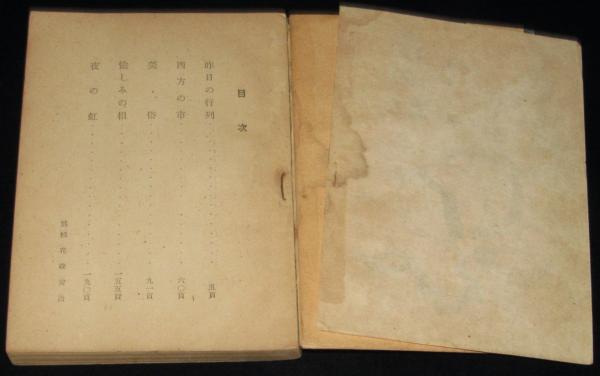 目次
昨日の行列・・・・・・・・・・五頁
四方の市・・・・・・・・・・六〇頁
美・俗・・・・・・・・・・九一頁
愉しみの相・・・・・・・・・・一五五頁
夜の虹・・・・・・・・・・一九〇頁